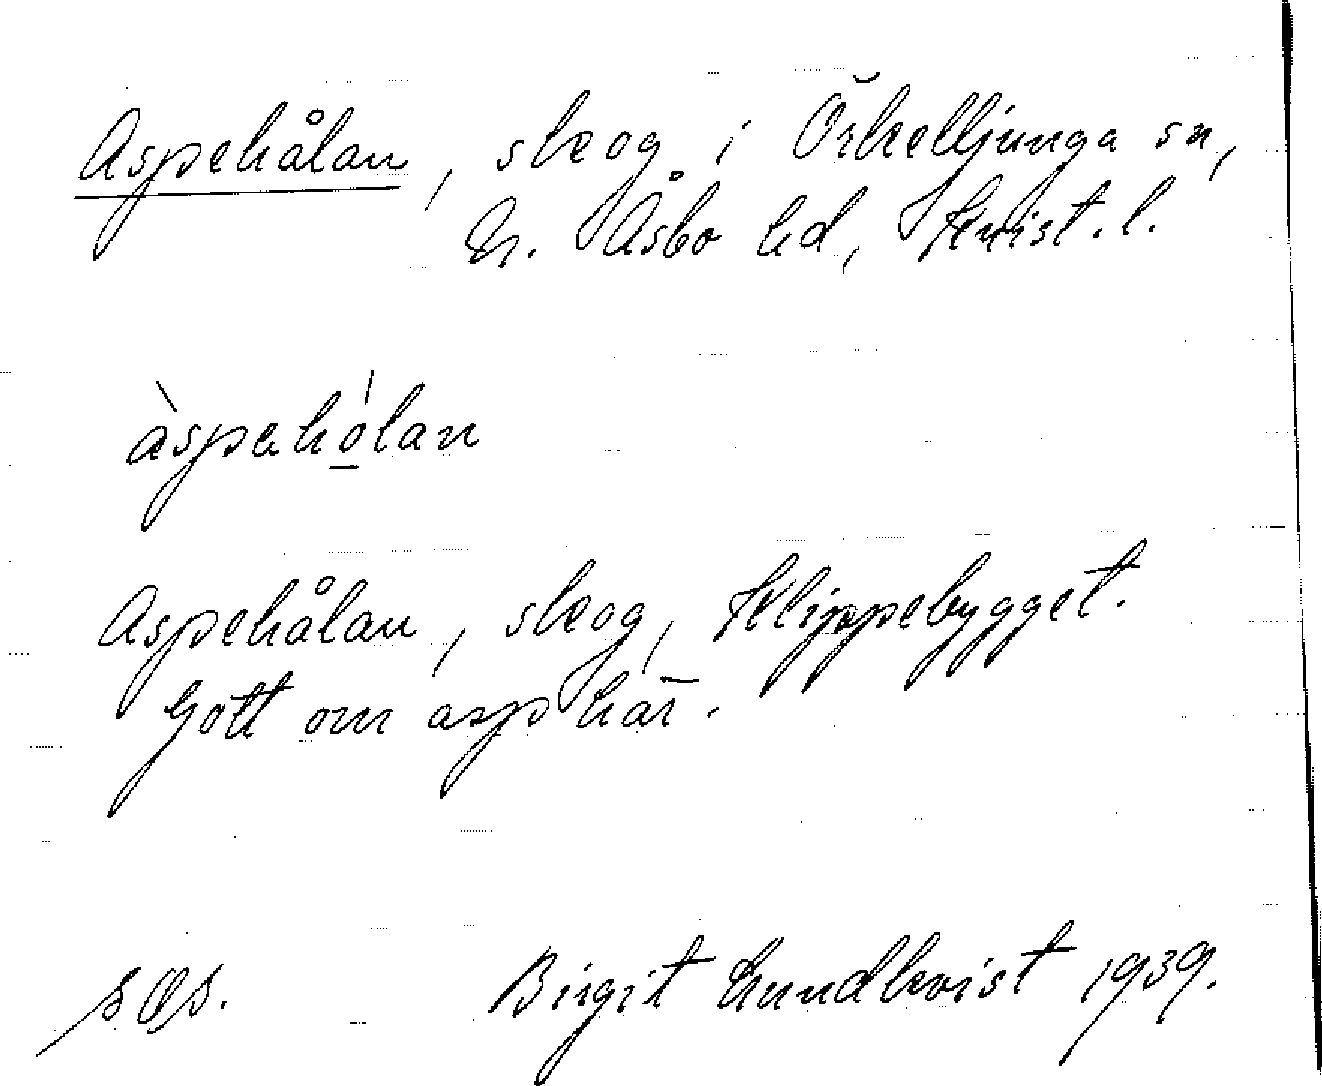 Aspehålan, skog i Örkelljunga sn,
N. Åsbo hd, Krist. l.
àspahó̱lan
Aspehålan, skog, Klippebygget.
Gott om asp här.
Birgit Lundkvist 1939.